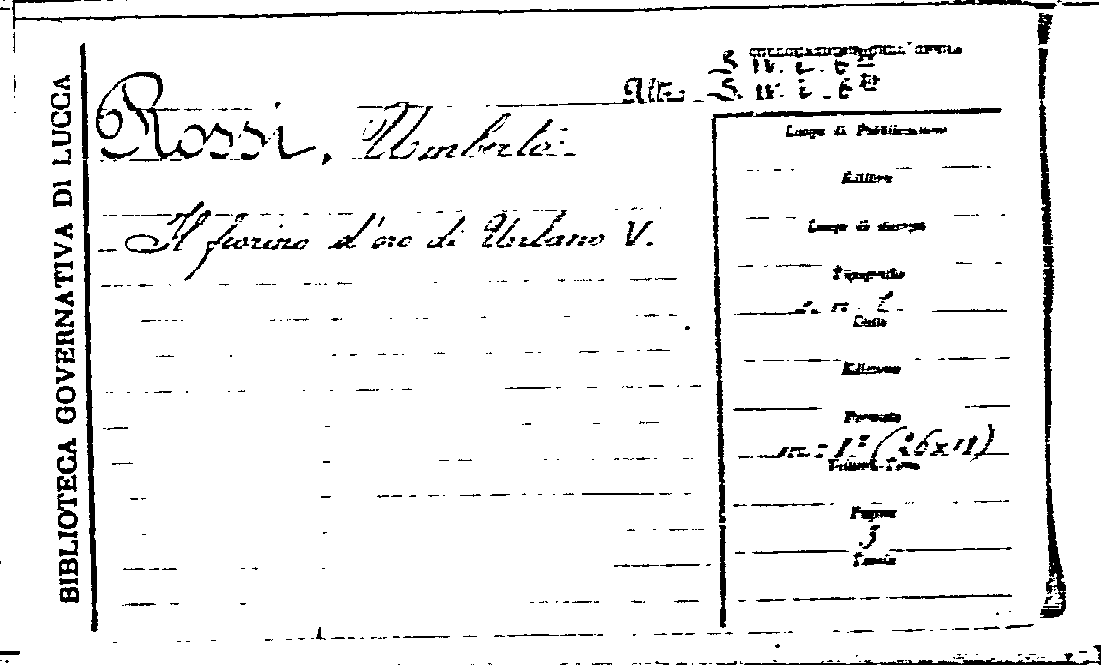 BIBLIOTECA GOVERNATIVA DI LUCCA
COLLOCAZIONE DELL'OPERA
Rossi, Umberto
Il fiorino d'oro di Urbano V.
Luogo di Pubblicazione
Editore
Luogo di stampa
Tipografia
s. n. t.
Data
Edizione
Formato
(26x18)
Volumi-Tomo
Pagine
Tavole